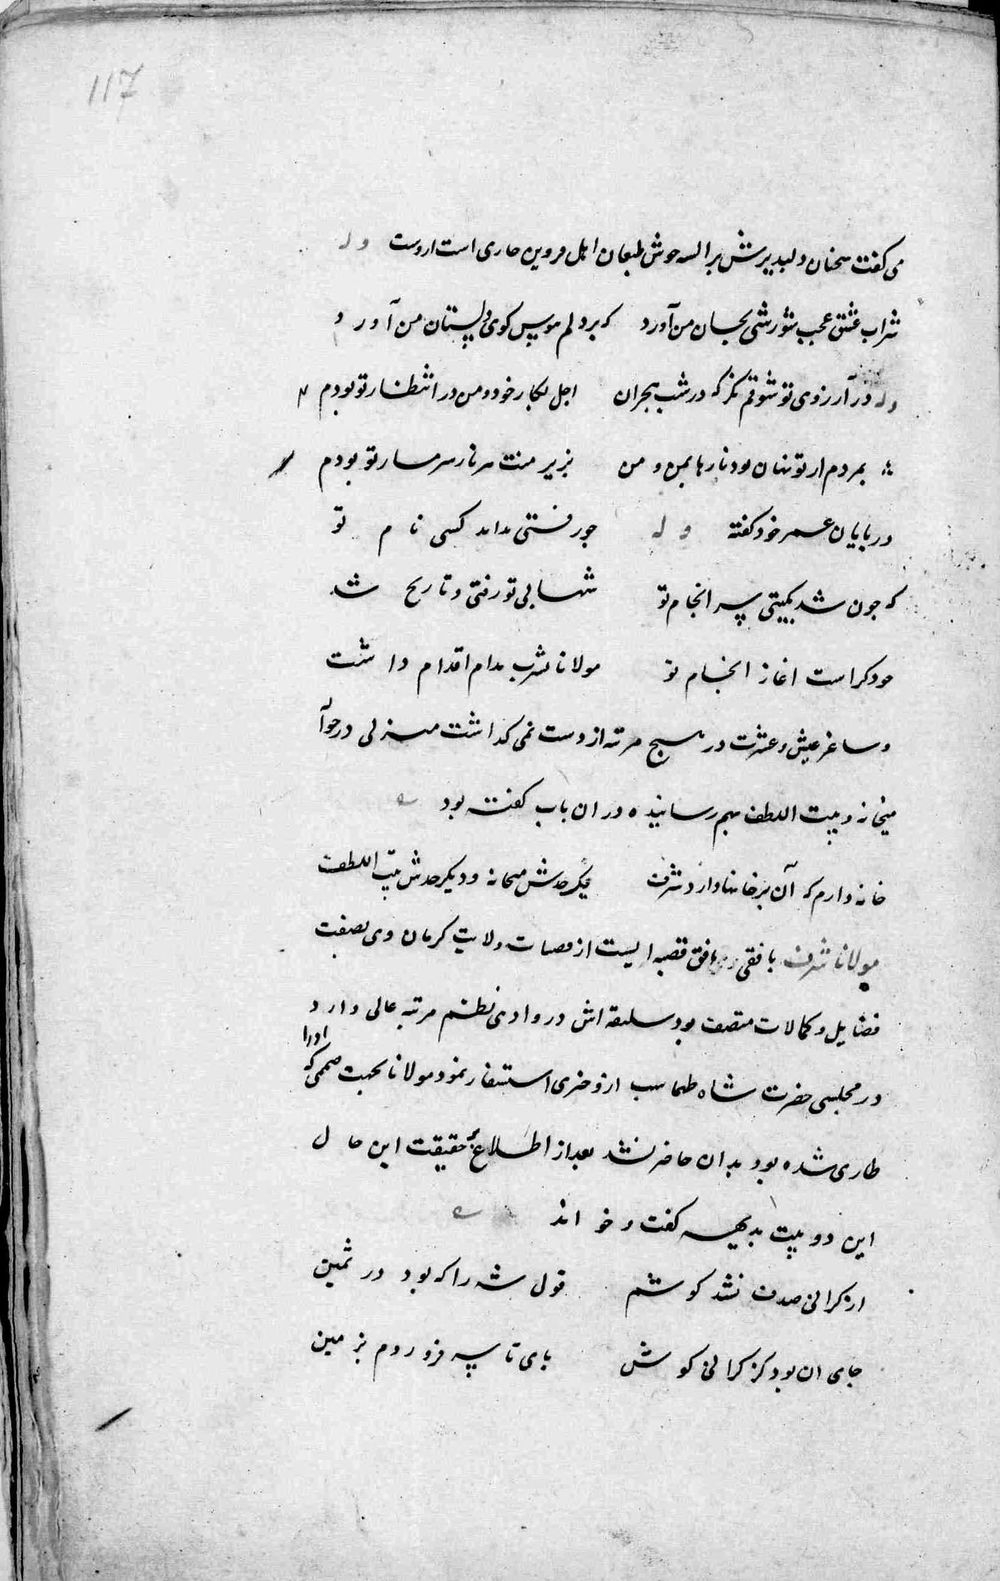 117
می کفت سخنان دلپذیرش بر السنه خوش طبعان اهل قزوین جاری است اروست وله
شراب عشق عجب شورشی بجان من آورد که برد لم هوس کوی دلستان من آورد
وله در آرزوی تو شوقم نکر که در شب هجران اجل بکار خود و من در انتظار تو بودم
بمردم از تو نهان بود نازها بمن و من بزیر منت هر ناز شرمسار تو بودم
در پایان عمر خود کفته وله چو رفتی نداند کسی نام تو
که چون شد بکیتی سر انجام تو شها بی تو رفتی و تاریخ شد
خود کراست اغاز انجام تو مولانا شرب مدام اقدام داشت
و ساغر عیش و عشرت در هیچ مرتبه از دست نمی کذاشت منزلی در جوار
میخانه و بیت اللطف بهم رسانیده در ان باب کفته بود
خانه دارم که آن بر خانها دارد شرف یکحدش میخانه و دیکر حدش بیت اللطف
مولانا شرف بافقی و بافق قصبه ایست از قصبات ولایت کرمان وی بصفت
فضایل و کمالات متصف بود سلیقه اش در وادی نظم مرتبه عالی دارد
در مجلسی حضرت شاه طهماسب ازو خبری استفسار نمود مولانا بجهت صممی که اورا
طاری شده بود بدان حاضر نشد بعد از اطلاع بر حقیقت این حال
این دو بیت بدیهه کفت و خواند
از کرانی صدف نشد کوشم قول شه را که بود در ثمین
جای ان بود کز کرانی کوش پای تا سر فرو روم بزمین